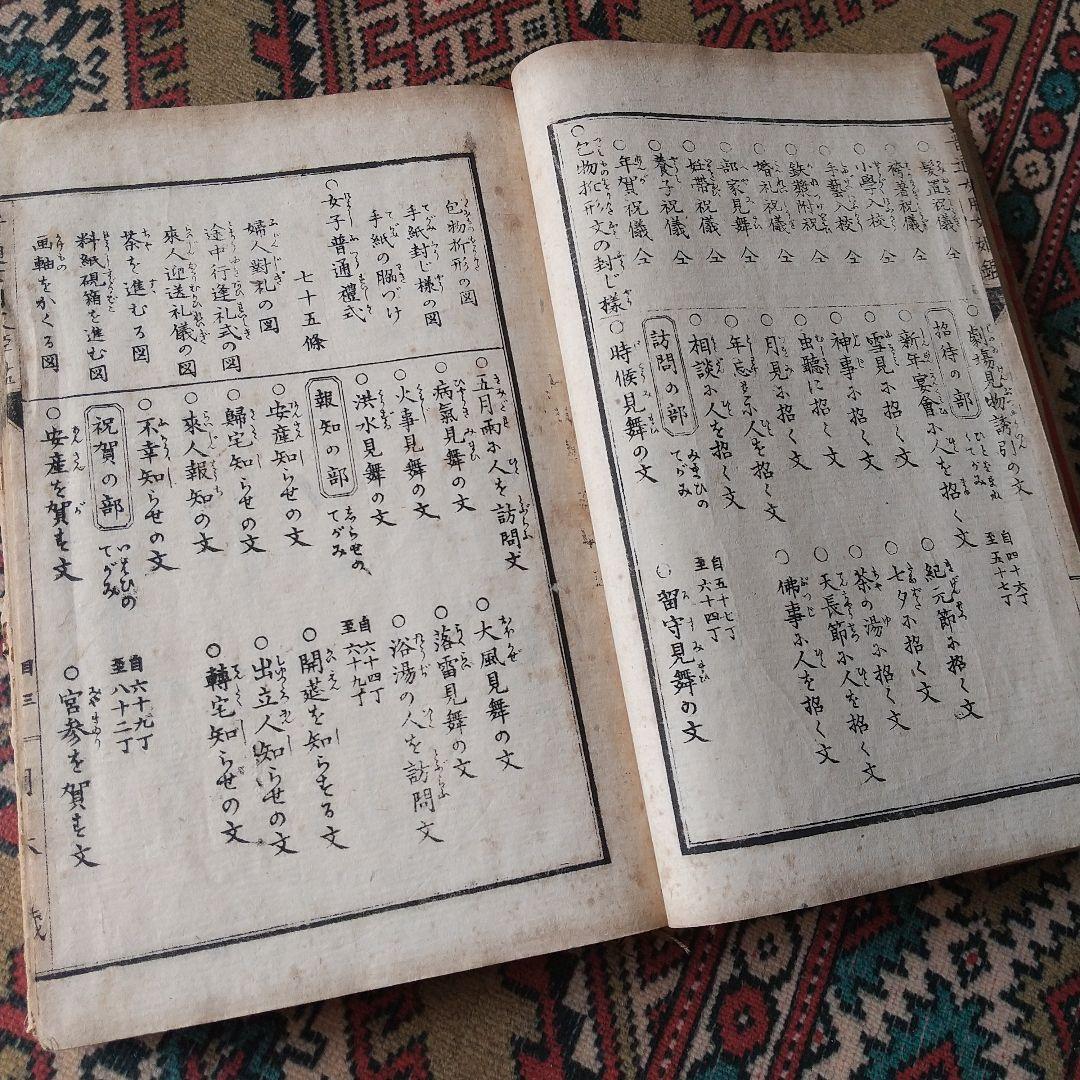 ○髪置祝儀 仝
○袴着祝儀 仝
○小學入校 仝
○手藝入校 仝
○鉄漿附祝 仝
○婚礼祝儀 仝
○部家見舞 仝
○妊帯祝儀 仝
○養子祝儀 仝
○年賀祝儀 仝
○包物折形文の封じ様
○劇場見物誘引の文
招待の部 ひとをまねくてがみ 自四十六丁 至五十七丁
○新年宴會に人を招く文
○紀元節に招く文
○雪見に招く文
○七夕に招く文
○神事に招く文
○茶の湯に招く文
○虫聽に招く文
○天長節に人を招く文
○月見に招く文
○佛事に人を招く文
○年忘に人を招く文
○相談に人を招く文
訪問の部 みまひのてがみ 自五十七丁 至六十四丁
○時候見舞の文
○留守見舞の文
包物折形の図
手紙封じ様の図
手紙の脇づけ
○女子普通禮式
七十五條
婦人對礼の図
途中行逢礼式の図
來人迎送礼儀の図
茶を進むる図
料紙硯箱を進む図
画軸をかくる図
○五月雨に人を訪問文
○大風見舞の文
○病氣見舞の文
○落雷見舞の文
○火事見舞の文
○浴湯の人を訪問文
○洪水見舞の文
報知の部 しらせのてがみ 自六十四丁 至六十九丁
○安産知らせの文
○開莚を知らする文
○歸宅知らせの文
○出立人知らせの文
○來人報知の文
○轉宅知らせの文
○不幸知らせの文
祝賀の部 いはひのてがみ 自六十九丁 至八十二丁
○安産を賀す文
○宮参を賀す文
目三